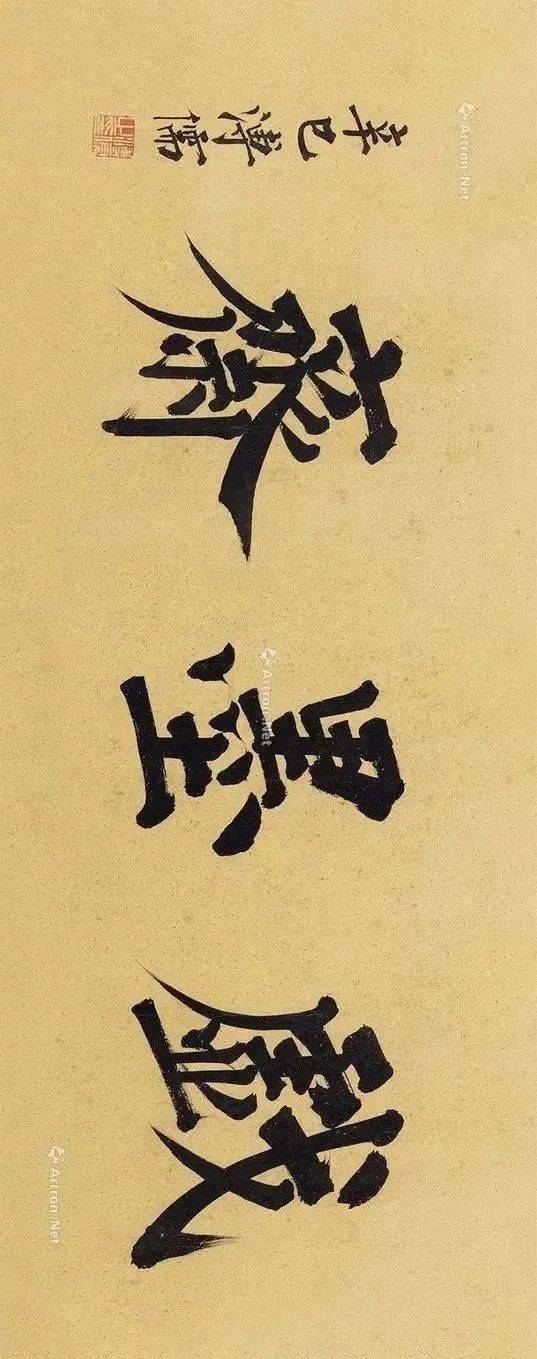 戱墨齋
辛巳溥儒
Artron.Net
Artron.Net
Artron.Net